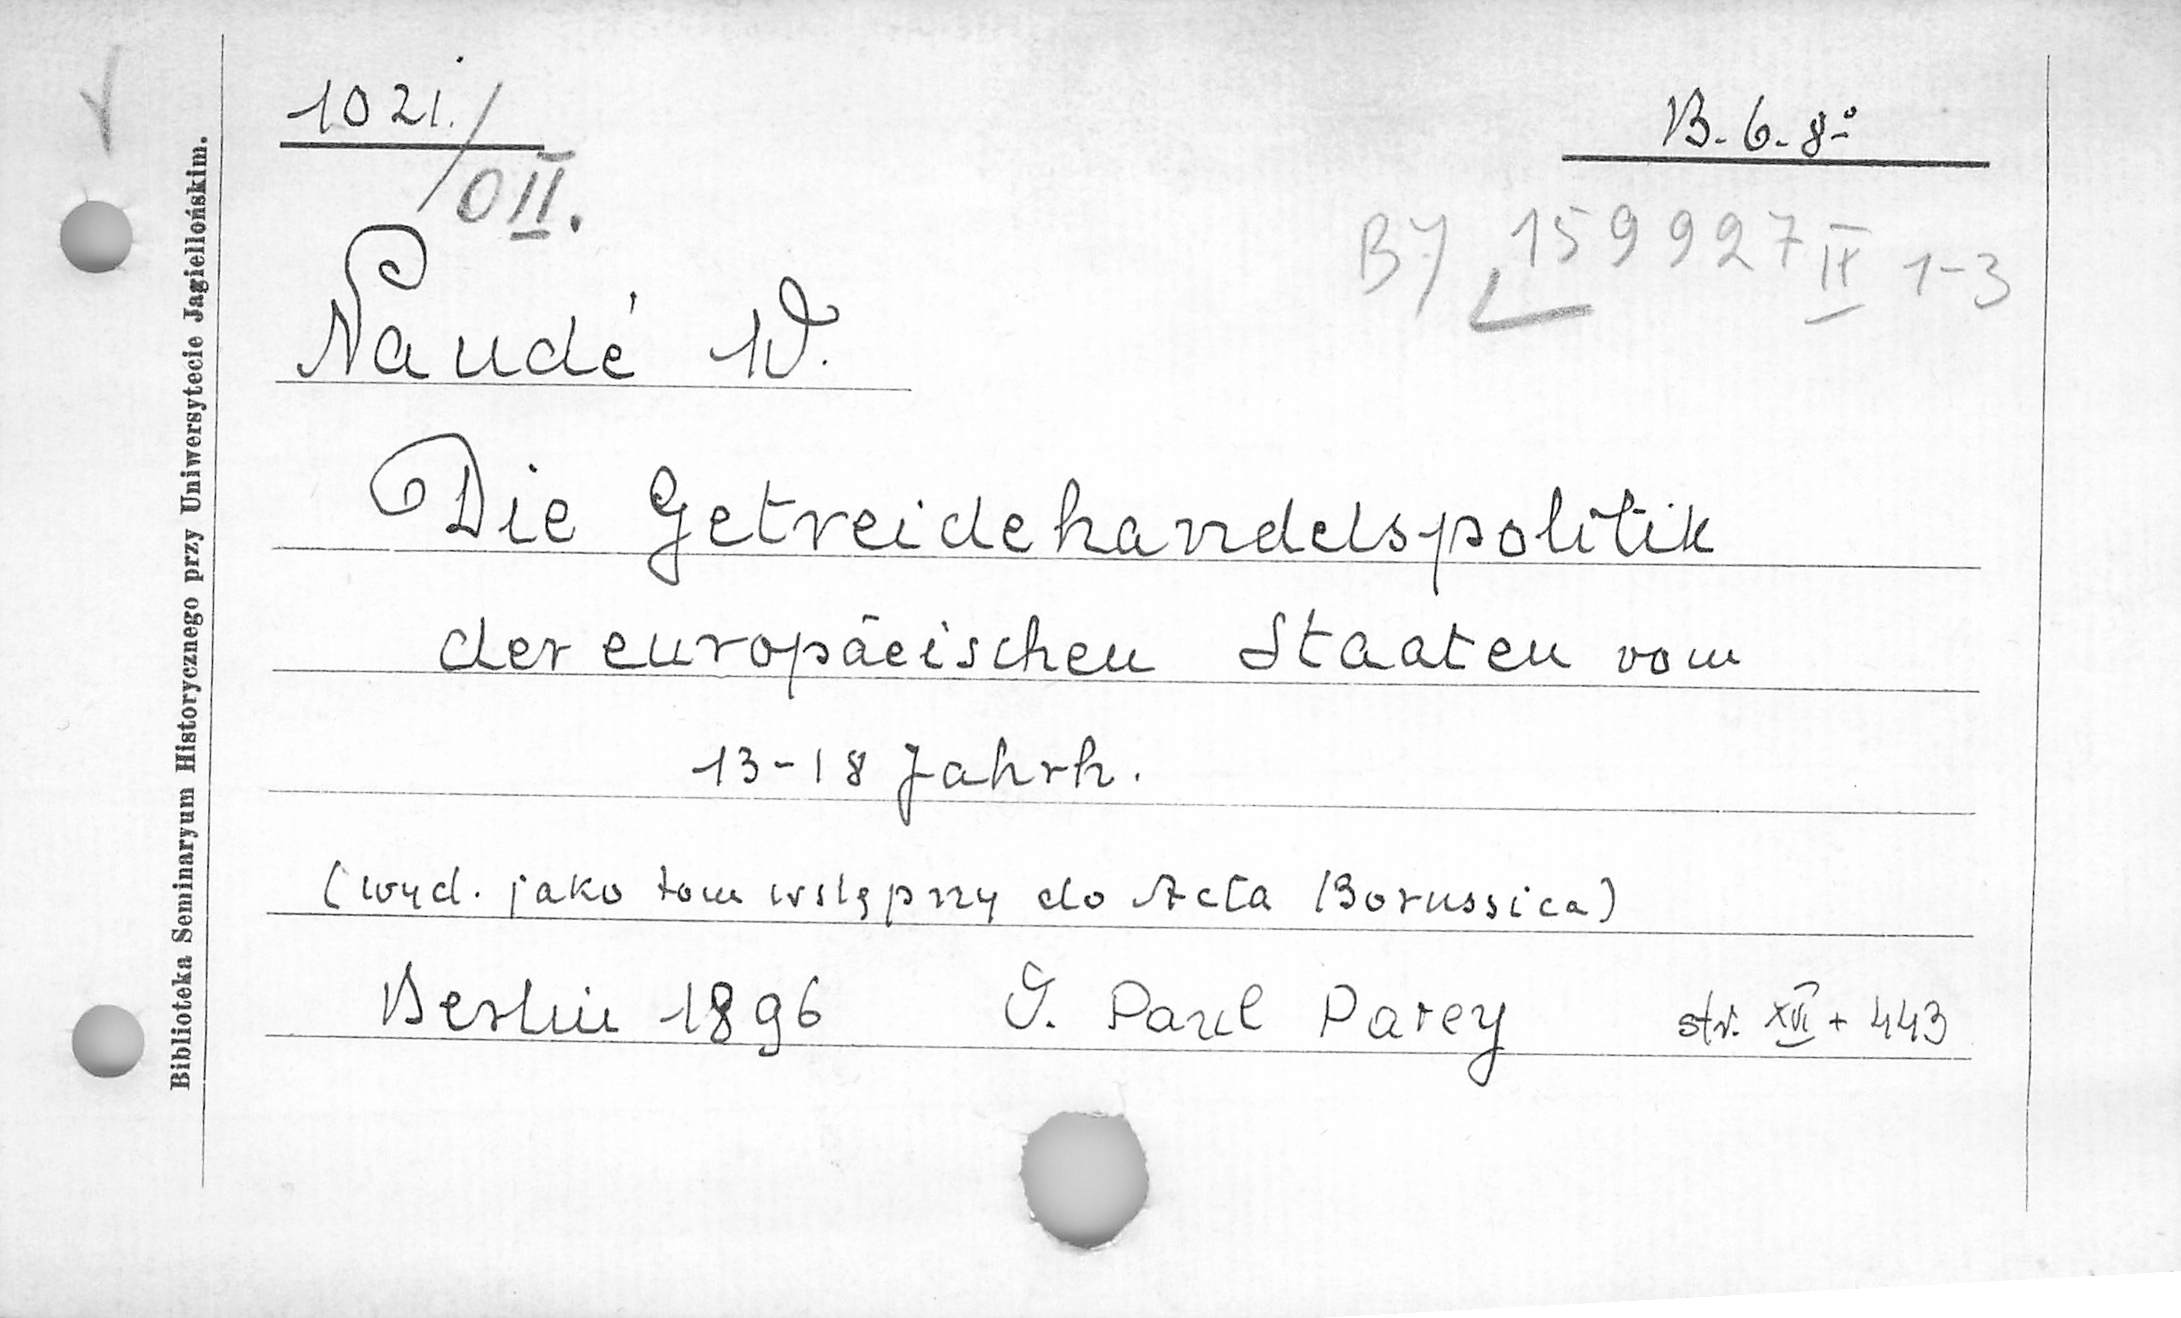 1021./
B. 6. 8-o
OII.
BJ 159927 II 1-3
Naudé W.
Die Getreidehandelspolitik
der europäeischen Staaten vom
13-18 Jahrh.
(wyd. jako tom wstępny do Acta Borussica)
Berlin 1896 V. Paul Parey str. XVI + 443
Biblioteka Seminaryum Historycznego przy Uniwersytecie Jagiellońskim.